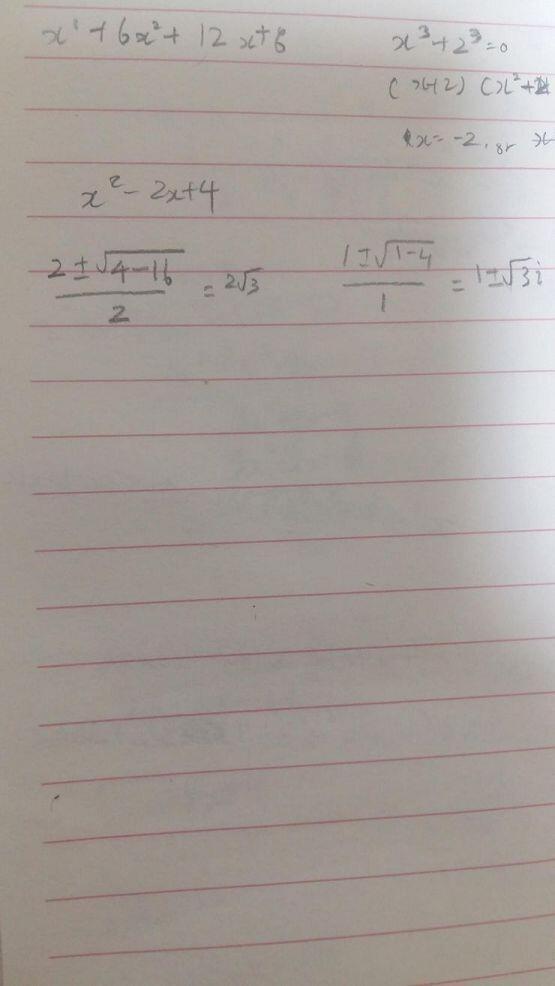 x³ + 6x² + 12x+8
x³+2³=0
(x+2) (x²+2
x= -2, or x
x² - 2x+4
(2 ± √(4-16))/2 = 2√3
(1 ± √(1-4))/1 = 1±√3i